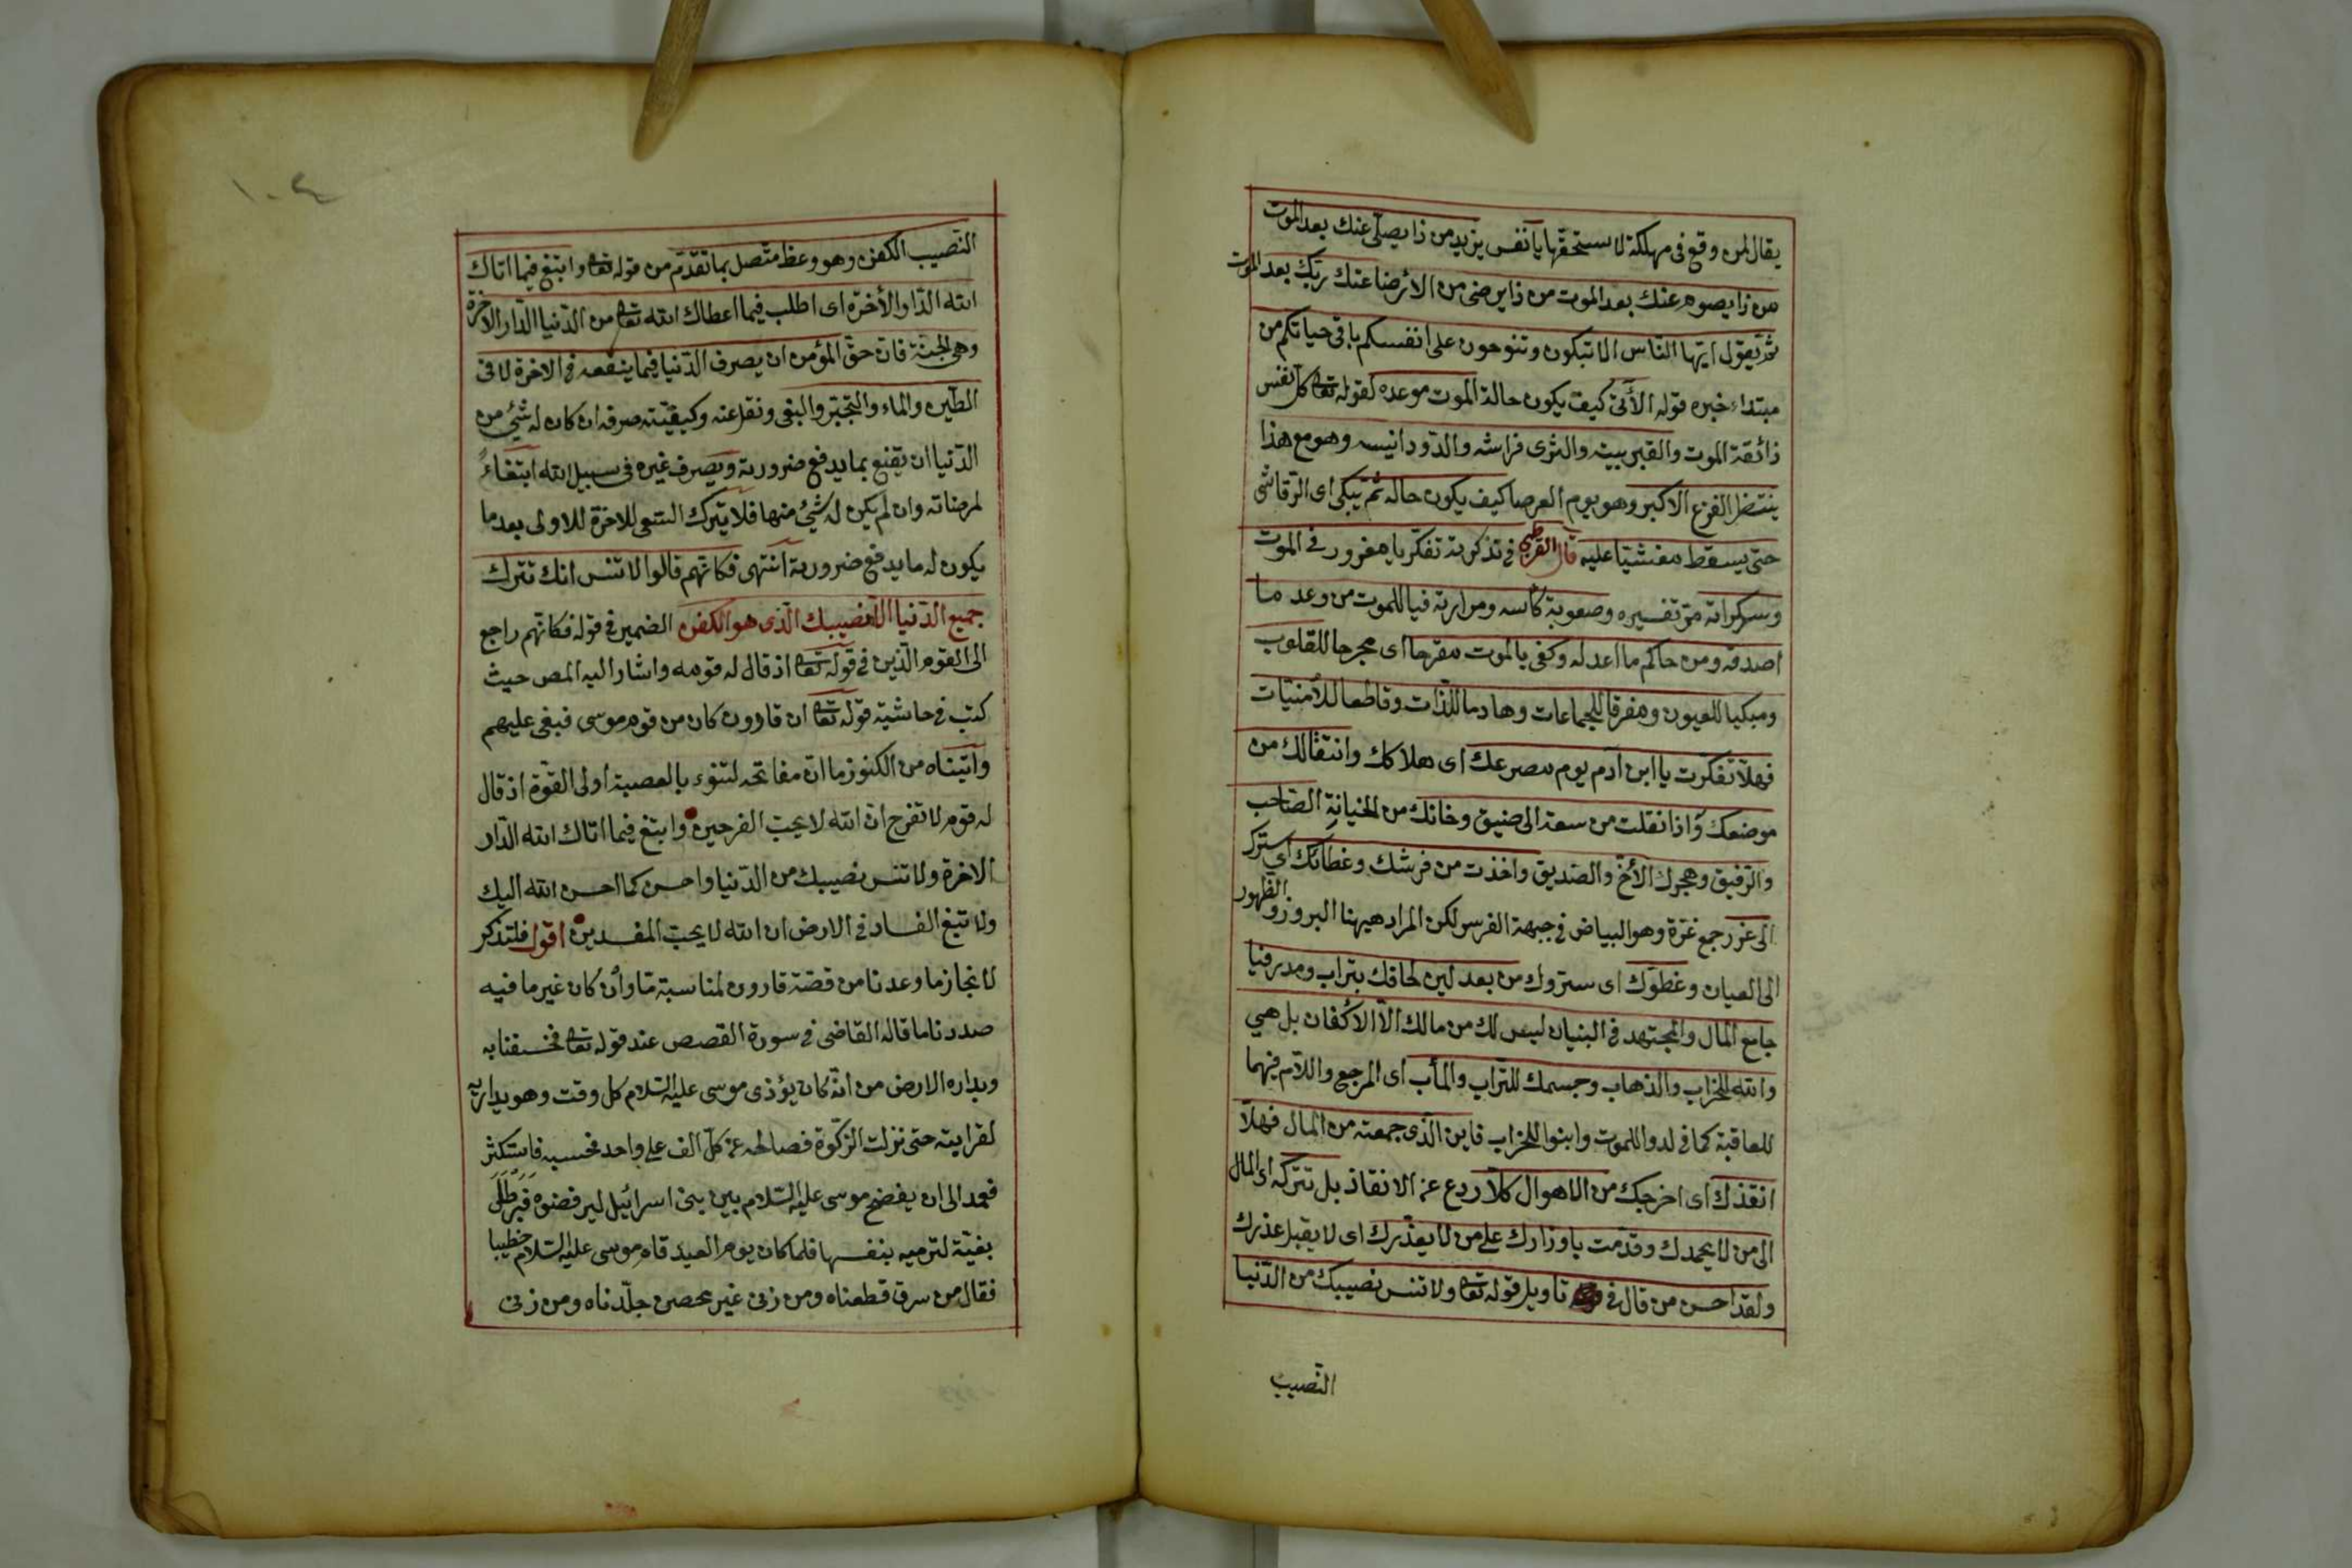 يقال لمن وقع فى مهلكة لا يستحقها يا نفس يزيد من ذا يصلى عنك بعد الموت
من ذا يصوم عنك بعد الموت من ذا يرضى من الارضا عنك ربك بعد الموت
ثم يقول ايها الناس الا تبكون وتنوحون على انفسكم باقى حياتكم من
مبتداء خبره قوله الأتى كيف يكون حالة الموت موعده لقوله تعا كل نفس
ذائقة الموت والقبر بيته والثرى فراشه والدود انيسه وهو مع هذا
ينتضل الفزع الاكبر وهو يوم العرصا كيف يكون حاله ثم تبكى اى الرقاشى
حتى يسقط مغشيا عليه قال القرطبى فى تذكرته تفكر يا مغرور فى الموت
وسكراته وصعوبة كأسه ومرارته فيا للموت من وعد ما
اصدقه ومن حاكم ما اعدله وكفى بالموت مقرحا اى مجرحا للقلوب
ومبكيا للعيون ومفرقا للجماعات وهادما للذات وقاطعا للأمنيات
فهلا تفكرت يا ابن آدم يوم مصرعك اى هلاكك وانتقالك من
موضعك واذا نقلت من سعة الى ضيق وخانك من الخيانة الصاحب
والرفيق وهجرك الأخ والصديق واخذت من فرشك وغطائك اى سترك
الى غرر جمع غرة وهو البياض فى جبهة الفرس لكن المراد هيهنا البروز والظهور
الى العيان وغطوك اى ستروك من بعد لين لحافك بتراب ومدر فيا
جامع المال والمجتهد فى البنيان ليس لك من مالك الا الاكفان بل هى
والله للخراب والذهاب وجسمك للتراب والمأب اى المرجع واللام فيهما
للعاقبة كما فى لدوا للموت وابنوا للخراب فاين الذى جمعته من المال فهلا
انقذك اى اخرجك من الاهوال كلا ردع عن الانقاذ بل تتركه اى المال
الى من لا يحمدك وقدمت باوزارك على من لا يعذرك اى لا يقبل عذرك
ولقد احسن من قال فى تاويل قوله تعا ولا تنس نصيبك من الدنيا
النصيب
١٠٤
النصيب الكفن وهو وعظ متصل بما تقدم من قوله تعا وابتغ فيما اتاك
الله الدار الأخرة اى اطلب فيما اعطاك الله تعا من الدنيا الدار الاخرة
وهى الجنة فان حق المؤمن ان يصرف الدنيا فيما ينفعه فى الاخرة لا فى
الطين والماء والتجبر والبغى ونقل عنه وكيفيته صرفه ان كان له شئ من
الدنيا ان يقنع بما يدفع ضرورته ويصرف غيره فى سبيل الله ابتغاءً
لمرضاته وان لم يكن له شئ منها فلا يترك السعى للاخرة للاولى بعد ما
يكون له ما يدفع ضرورية انتهى فكانهم قالوا لا تنس انك تترك
جميع الدنيا الا نصيبك الذى هو الكفن الضمير فى قوله فكانهم راجع
الى القوم الذين فى قوله تعا اذ قال له قومه واشار اليه المص حيث
كتب فى حاشية قوله تعا ان قارون كان من قوم موسى فبغى عليهم
وآتيناه من الكنوز ما ان مفاتحه لتنوء بالعصبة أولى القوة اذ قال
له قومه لا تفرح ان الله لا يحب الفرحين وابتغ فيما اتاك الله الدار
الاخرة ولا تنس نصيبك من الدنيا واحسن كما احسن الله اليك
ولا تبغ الفساد فى الارض ان الله لا يحب المفسدين اقول فلتذكر
لانجاز ما وعدنا من قصة قارون لمناسبة ما وان كان غير ما فيه
صددنا ما قاله القاضى فى سورة القصص عند قوله تعا فخسفنا به
وبداره الارض من انه كان يؤذى موسى عليه السلام كل وقت وهو يداريه
لقرابته حتى نزلت الزكوة فصالحه عن كل الف على واحد فحسبه فاستكثر
فعمد الى ان يفضح موسى عليه السلام بين بنى اسرائيل ليرفضوه فبرطل
بغية لترميه بنفسها فلما كان يوم العيد قام موسى عليه السلام خطيبا
فقال من سرق قطعناه ومن زنى غير محصن جلدناه ومن زنى